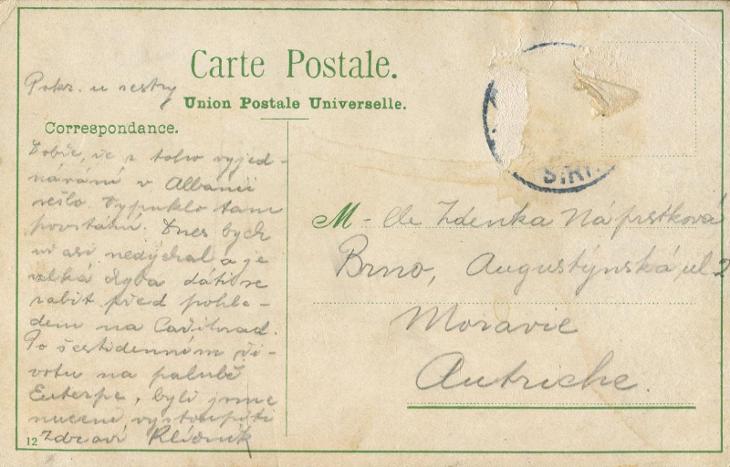 Carte Postale.
Union Postale Universelle.
Pokr. u sestry
Correspondance.
Dobře, že z toho vyjed-
návání v Albanii
sešlo. Vypuklo tam
povstání. Dnes bych
už asi nedýchal a je
velká chyba dáti se
zabít před pohle-
dem na Cařihrad.
Po šestidenním ži-
votu na palubě
Euterpe, byli jsme
nuceni vystoupiti
Zdraví
12
SIRK
M-lle Zdenka Náprstková
Brno, Augustýnská ul. 2
Moravie
Autriche.